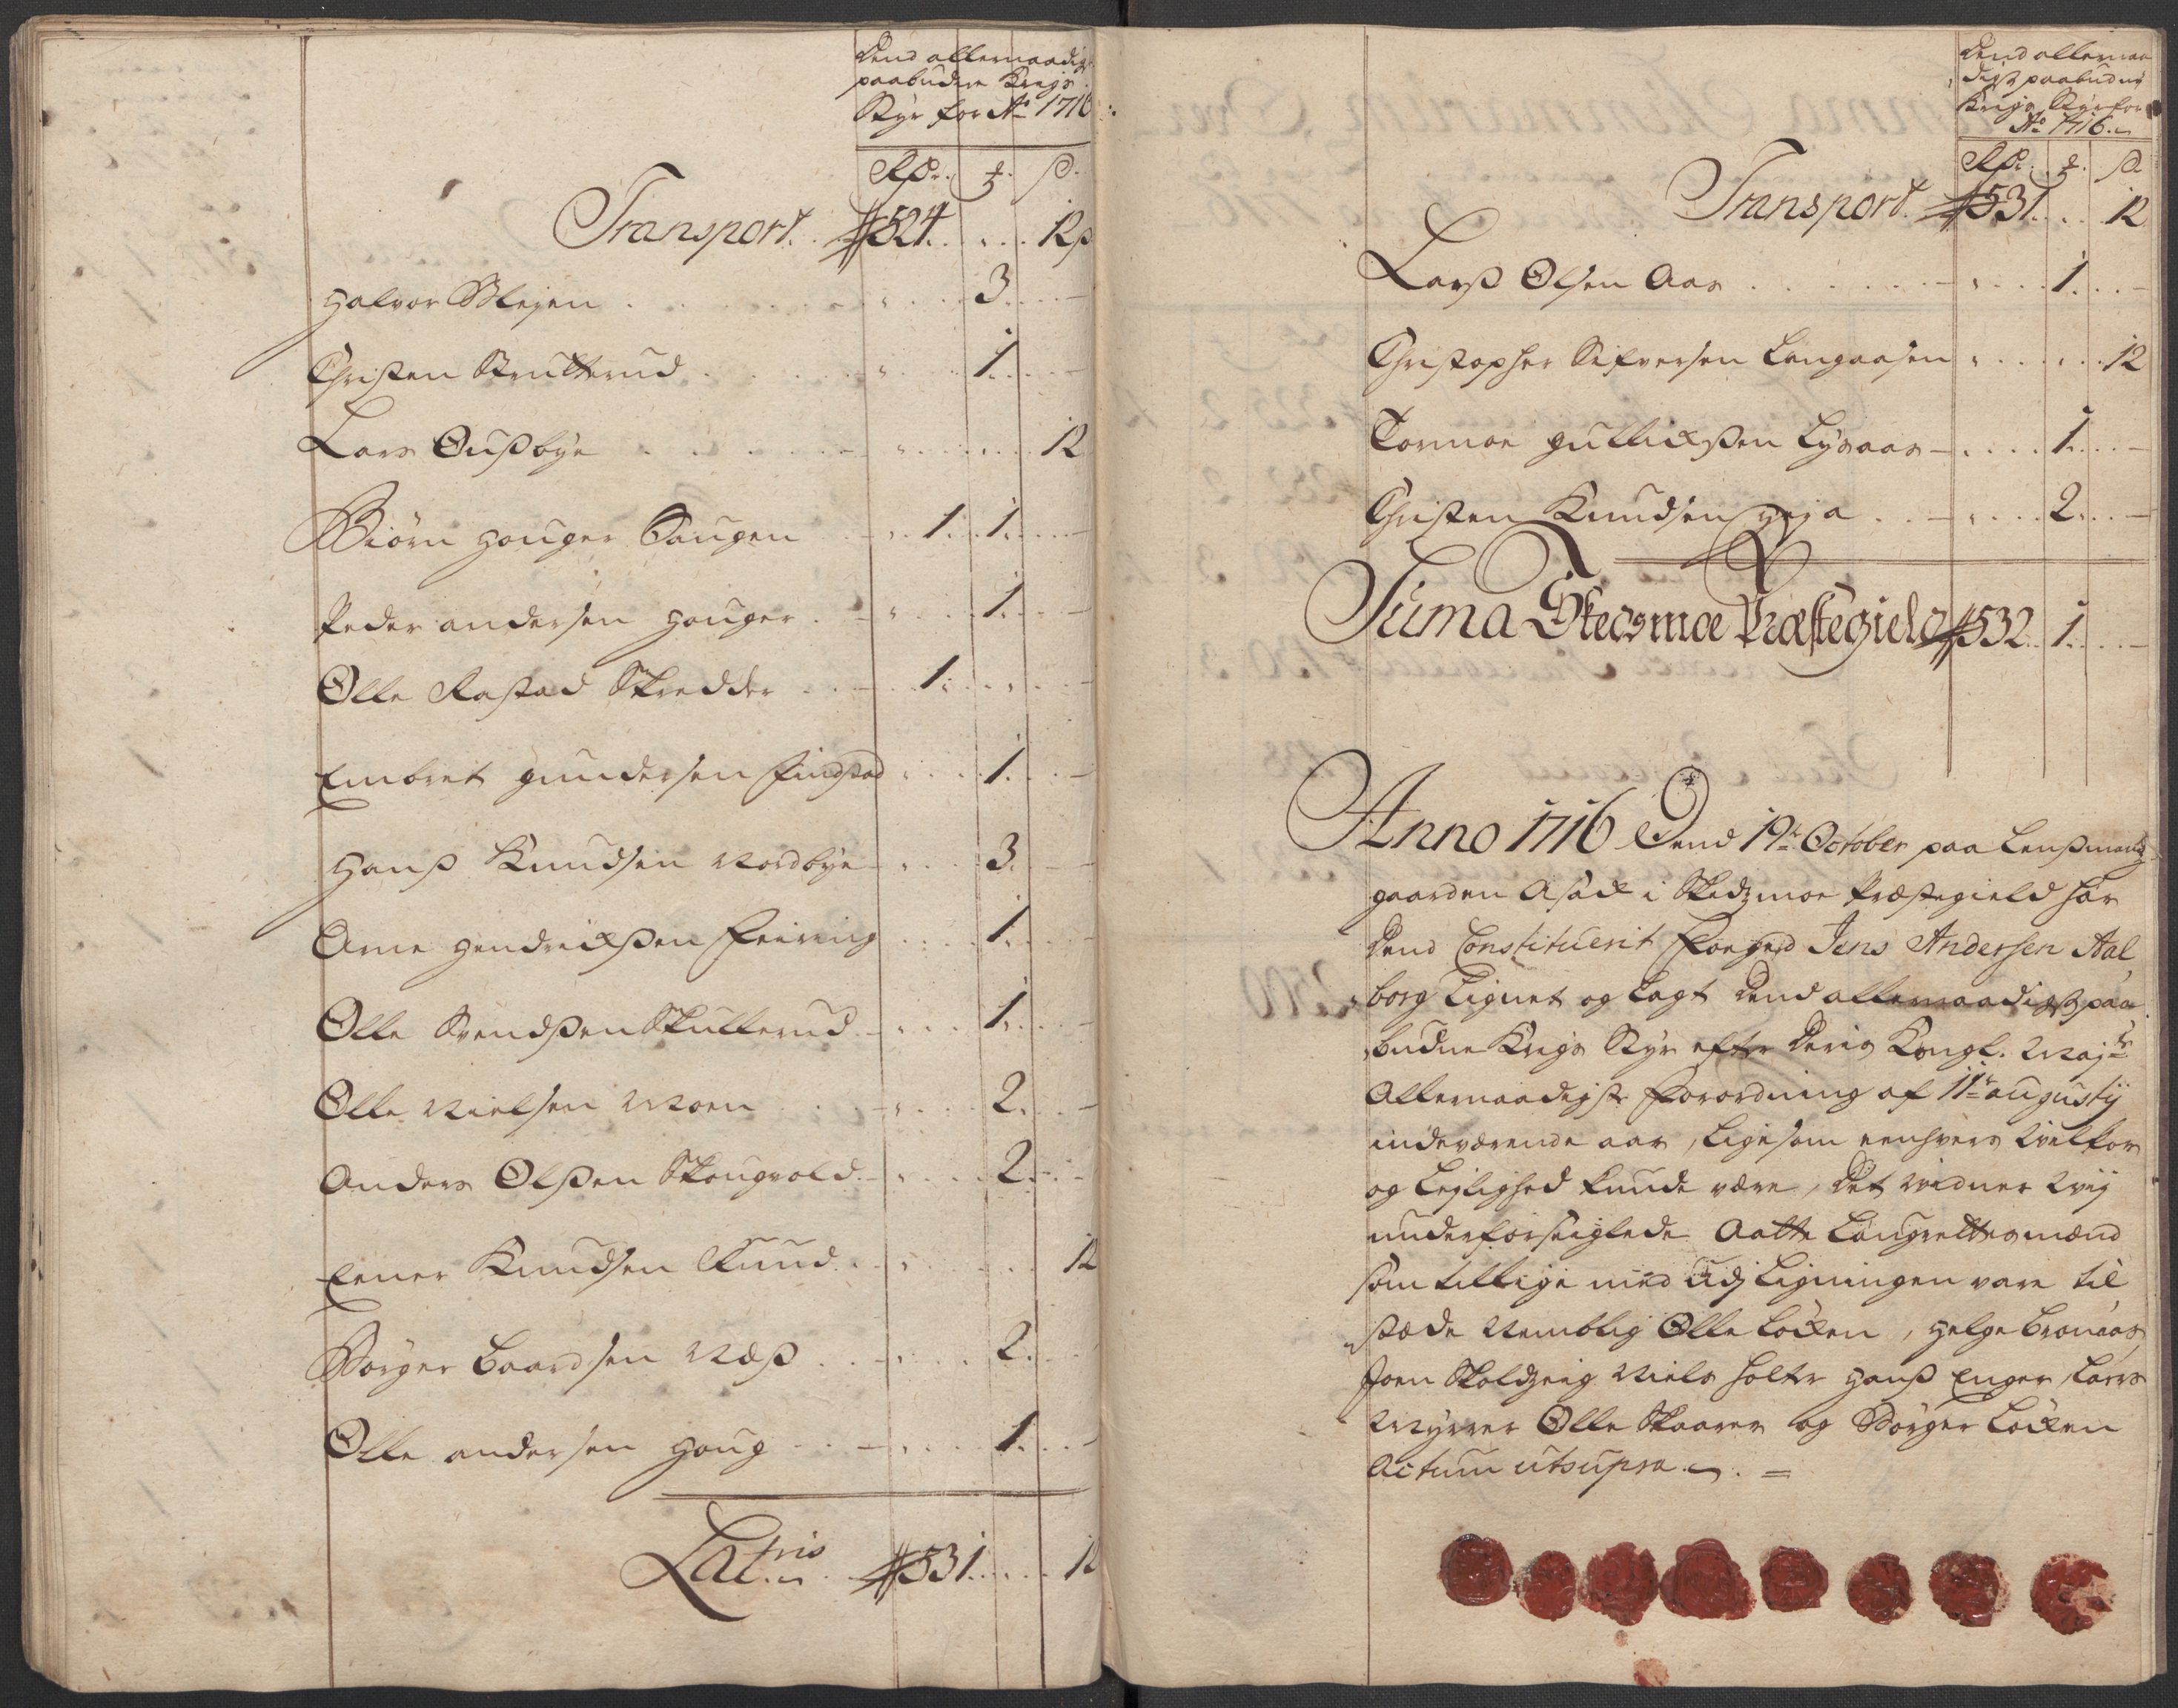 Dend allernaadigst
paabudne Krigs
Styr for Ao 1716
Rdr. ƶ. ß.
Transport. 524 12ß
Halvor Blejen 3
Christen Strutterud 1
Lars Ousbye 12
Biørn Houger Haugen 1 1
Peder andersen Houger 1
Olle Rastad Skredder 1
Embret gundersen Findstad 1
Hanß Knudsen Nordbye 3
Arne Hendrickßen Feiring 1
Olle Svendßen Skullerud 1
Olle Nielsen Moen 2
Anders Olßen Skougvold 2
Einer Knudsen Kuud 12
Børger Baardsen Næß 2
Olle andersen Houg 1
Latris 531 12
Dend allernaa
digst paabudne
Krigs Styr for
Ao 1716
Rdr. ƶ. ß.
Transport. 531 12
Larß Olsen Aas 1
Christopher Sifversen Langaasen 12
Tormoe gullickßen Lysaas 1
Christen Knudsen Heja 2
Suma Skedsmoe Præstegield 532 1
Anno 1716 Dend 19de October paa Lenßmands
gaarden Asack i Skedzmoe Præstegield har
Dend Constituerit Foeged Jens Andersen Aal
borg Lignet og Lagt Dend allernaadigst paa
budne Krigs Styr efter Deris Kongl. Majts
Allernaadigste Forordning af 11te augustij
indeværende aar, Ligesom eenhvers Vilkor
og Lejlighed kunde være, Det vidner Vij
underforseiglede Aatte Laugrettesmænd
som tillige med udj Ligningen vare til
stæde Nemblig Olle Løcken, Helge Braaaas
Joen Skoldzeig Niels Holter Hanß Enger, Lars
Myrer Olle Skaarer og Børger Løcken
Actum utsupra.